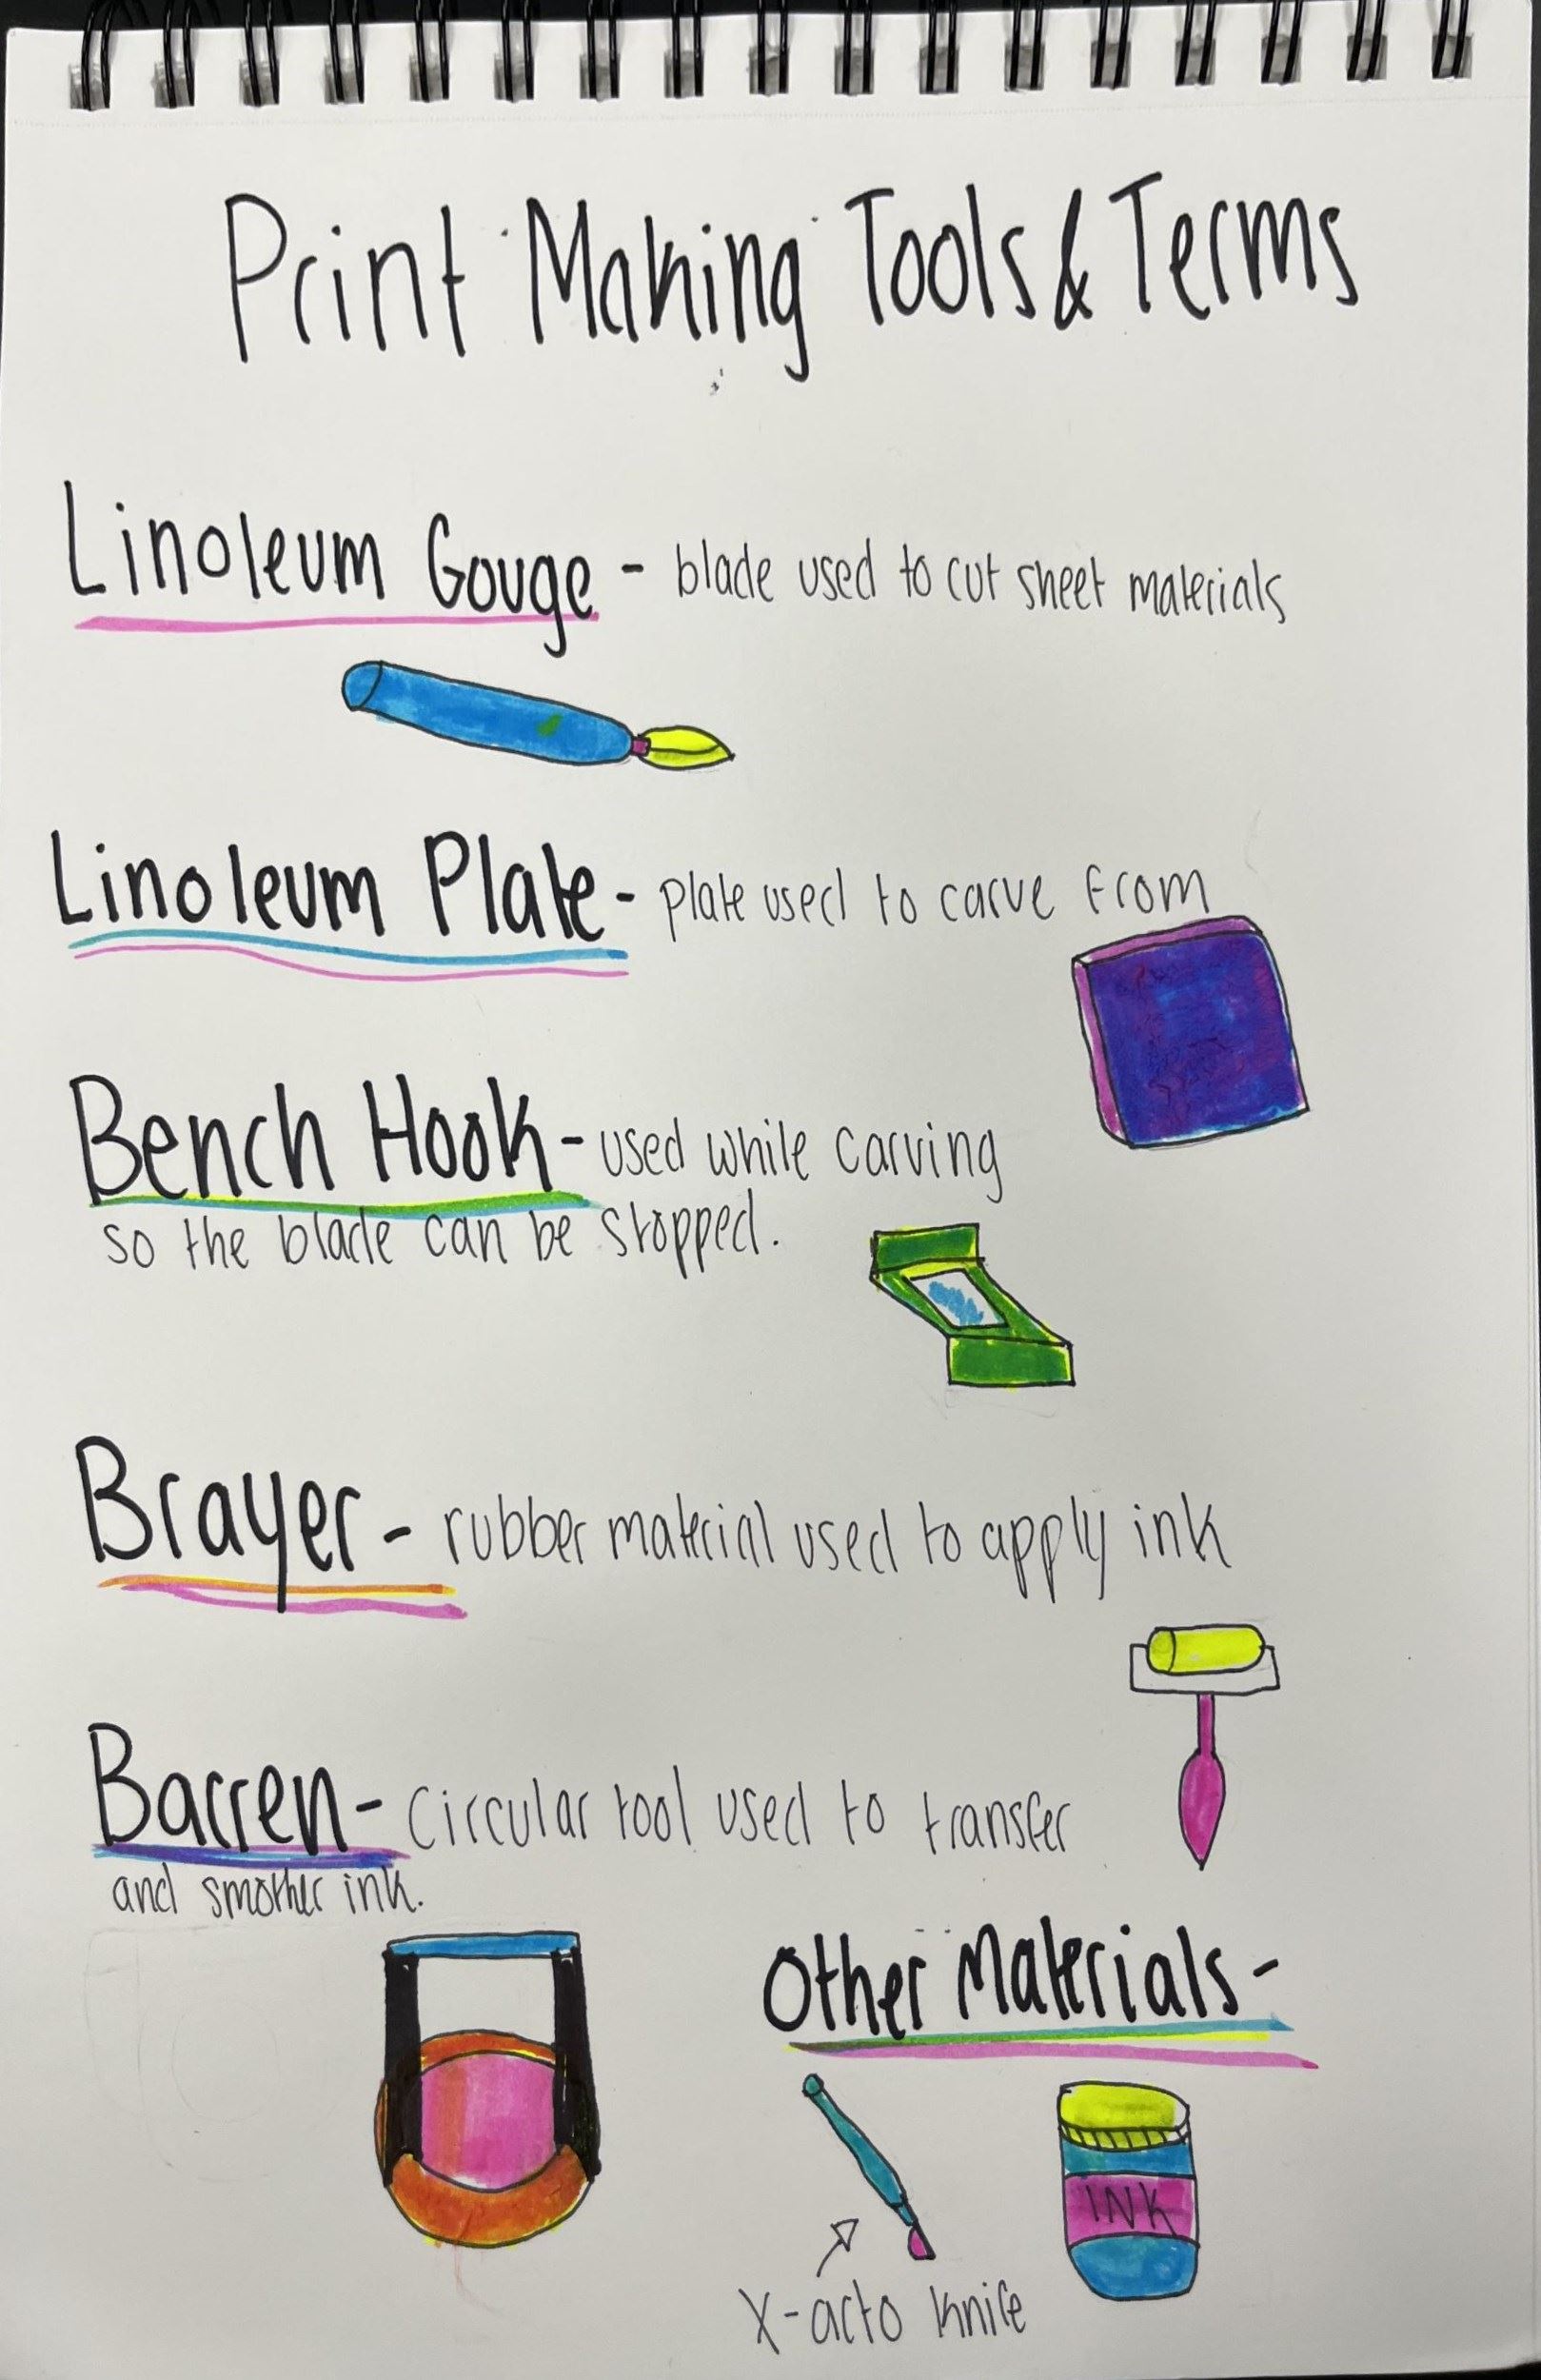 Print Making Tools & Terms
Linoleum Gouge - blade used to cut sheet materials
Linoleum Plate - plate used to carve from
Bench Hook - used while carving
so the blade can be stopped.
Brayer - rubber material used to apply ink
Barren - circular tool used to transfer
and smother ink.
Other Materials -
INK
X-acto knife